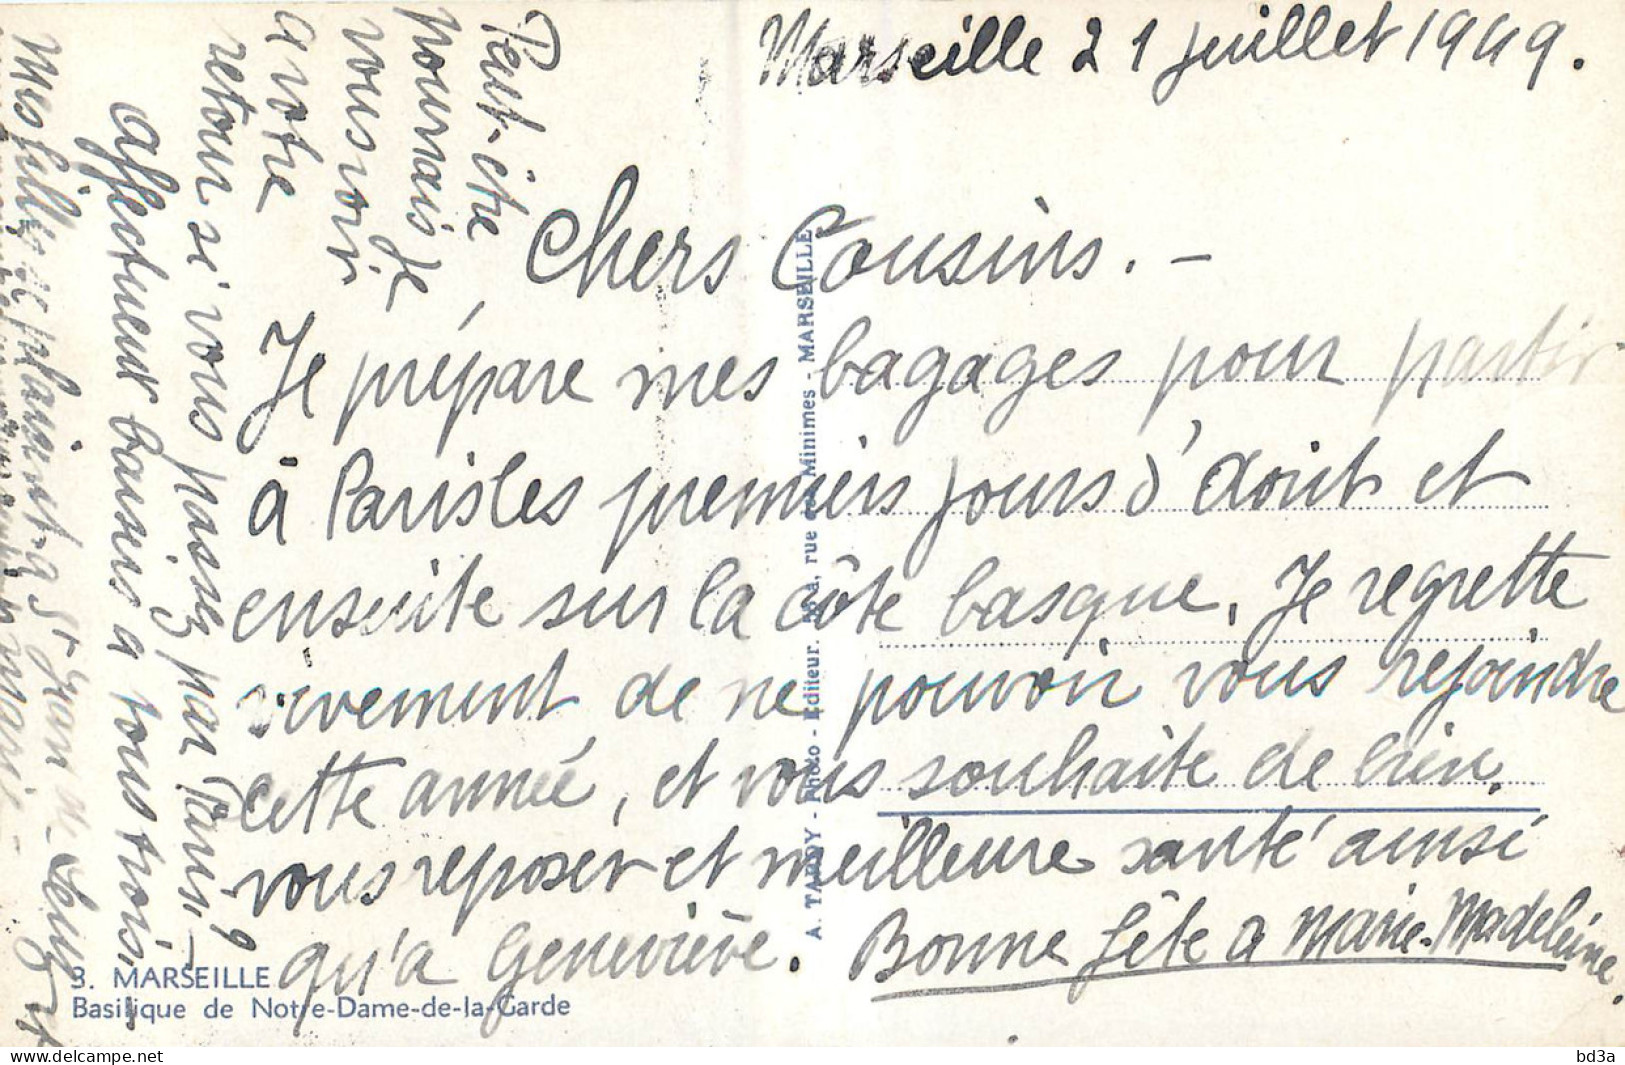 Marseille 21 juillet 1949.
Chers Cousins. -
Je prépare mes bagages pour partir
à Paris les premiers jours d'août et
ensuite sur la côte basque. Je regrette
vivement de ne pouvoir vous rejoindre
cette année, et vous souhaite de bien
vous reposer et meilleure santé ainsi
qu'à Geneviève. Bonne fête a Marie-Madeleine.
Peut-être
pourrais je
vous voir
a votre
retour si vous passez par Paris. ?
Affectueux baisers a tous trois.
Mes filles se plaisent a St Jean de Luz et
3. MARSEILLE
Basilique de Notre-Dame-de-la-Garde
A. TARDY - Photo - Editeur. rue des Minimes - MARSEILLE
bd3a